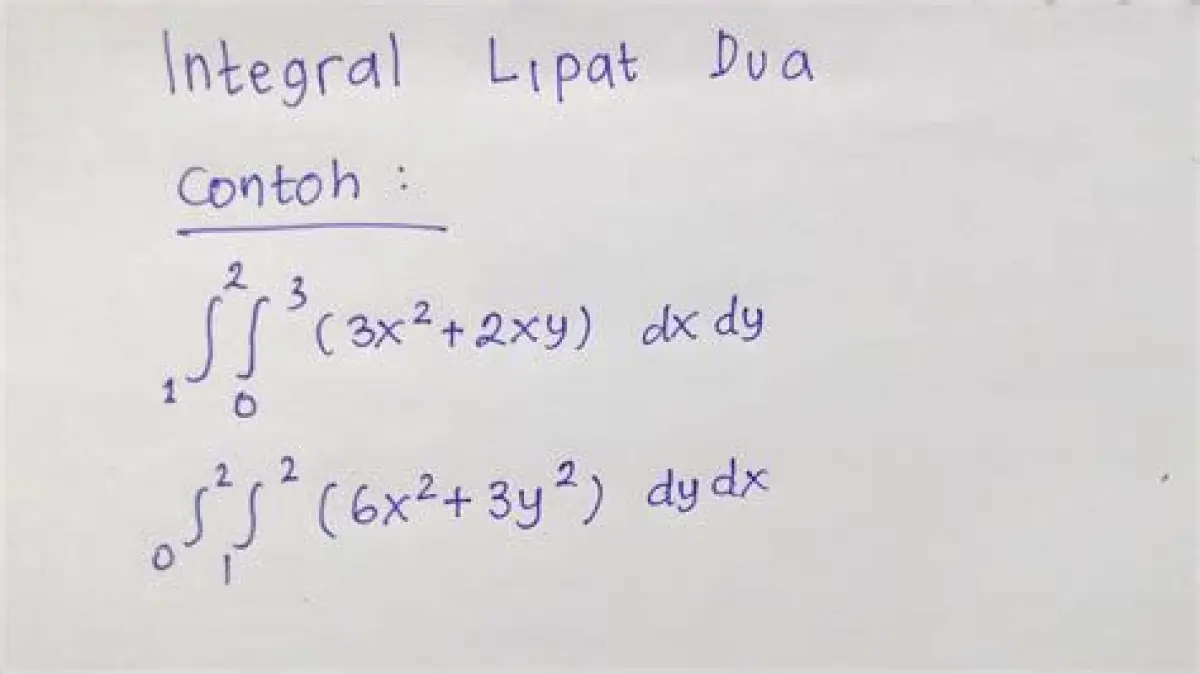 Integral Lipat Dua
Contoh :
∫₁² ∫₀³ (3x² + 2xy) dx dy
∫₀² ∫₁² (6x² + 3y²) dy dx